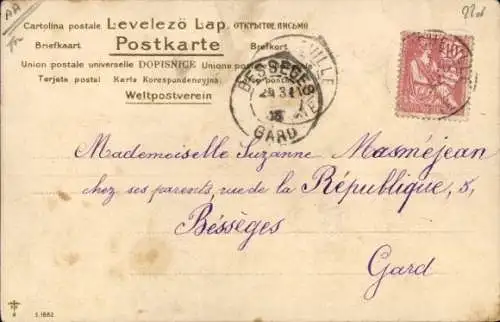 Cartolina postale Levelező Lap. ОТКРЫТОЕ ПИСЬМО
Briefkaart Postkarte Brefkort
Union postale universelle DOPISNICE Unione postale
Terjeta postal Karta Korespondencyjna
Weltpostverein
BESSÈGES
GARD
Mademoiselle Suzanne Masméjean
chez ses parents, rue de la République, 8,
Bésséges
Gard